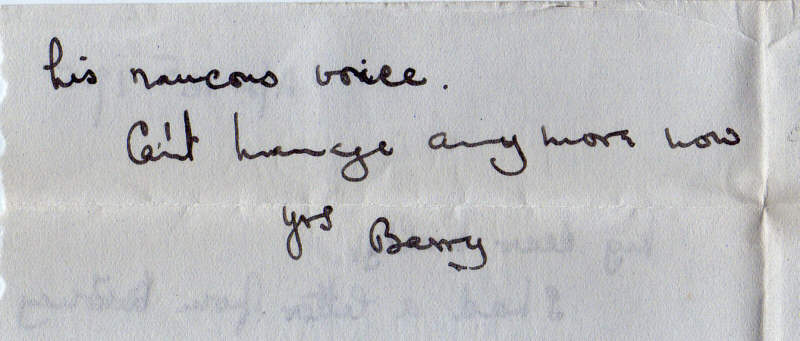 his raucous voice.
Can't manage any more now
yrs Barry